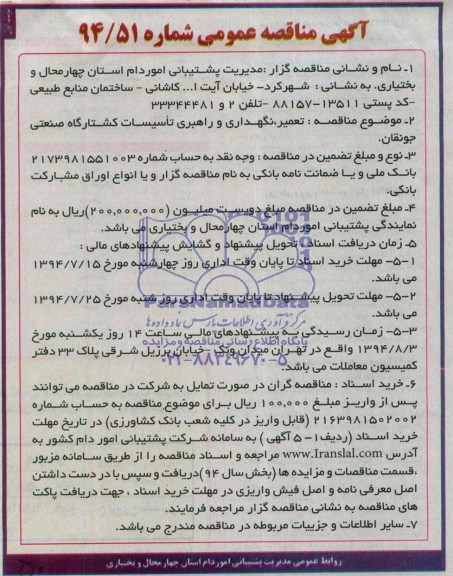 آگهی مناقصه عمومی شماره ۹۴/۵۱
۱- نام و نشانی مناقصه گزار :مدیریت پشتیبانی اموردام استان چهارمحال و
بختیاری. به نشانی : شهرکرد- خیابان آیت ا... کاشانی - ساختمان منابع طبیعی
-کد پستی ۱۳۵۱۱-۸۸۱۵۷ -تلفن ۲ و ۳۳۳۴۴۴۸۱
۲- موضوع مناقصه : تعمیر،نگهداری و راهبری تأسیسات کشتارگاه صنعتی
جونقان.
۳- نوع و مبلغ تضمین در مناقصه : وجه نقد به حساب شماره ۲۱۷۳۹۸۱۵۵۱۰۰۳
بانک ملی و یا ضمانت نامه بانکی به نام مناقصه گزار و یا انواع اوراق مشارکت
بانکی.
۴- مبلغ تضمین در مناقصه مبلغ دویست میلیون (۲۰۰,۰۰۰,۰۰۰)ریال به نام
نمایندگی پشتیبانی اموردام استان چهارمحال و بختیاری می باشد.
۵- زمان دریافت اسناد ، تحویل پیشنهاد و گشایش پیشنهادهای مالی :
۵-۱- مهلت خرید اسناد تا پایان وقت اداری روز چهارشنبه مورخ ۱۳۹۴/۷/۱۵
می باشد.
۵-۲- مهلت تحویل پیشنهاد تا پایان وقت اداری روز شنبه مورخ ۱۳۹۴/۷/۲۵
می باشد.
۵-۳- زمان رسیدگی به پیشنهادهای مالی ساعت ۱۴ روز یکشنبه مورخ
۱۳۹۴/۸/۳ واقع در تهران میدان ونک -خیابان برزیل شرقی پلاک ۳۳ دفتر
کمیسیون معاملات می باشد.
۶- خرید اسناد : مناقصه گران در صورت تمایل به شرکت در مناقصه می توانند
پس از واریز مبلغ ۱۰۰,۰۰۰ ریال برای موضوع مناقصه به حساب شماره
۲۱۶۳۹۸۱۵۰۲۰۰۲ (قابل واریز در کلیه شعب بانک کشاورزی) در تاریخ مهلت
خرید اسناد (ردیف۱- ۵ آگهی ) به سامانه شرکت پشتیبانی امور دام کشور به
آدرس www.Iranslal.com مراجعه و اسناد مناقصه را از طریق سامانه مزبور
،قسمت مناقصات و مزایده ها (بخش سال ۹۴)دریافت و سپس با در دست داشتن
اصل معرفی نامه و اصل فیش واریزی در مهلت خرید اسناد ، جهت دریافت پاکت
های مناقصه به نشانی مناقصه گزار مراجعه فرمایند.
۷- سایر اطلاعات و جزییات مربوطه در مناقصه مندرج می باشد.
روابط عمومی مدیریت پشتیبانی اموردام استان چهارمحال و بختیاری
ParsNamadData
مرکز فرآوری اطلاعات پارس نماد داده ها
پایگاه اطلاع رسانی مناقصه و مزایده
۰۲۱-۸۸۳۴۹۶۷۰-۵